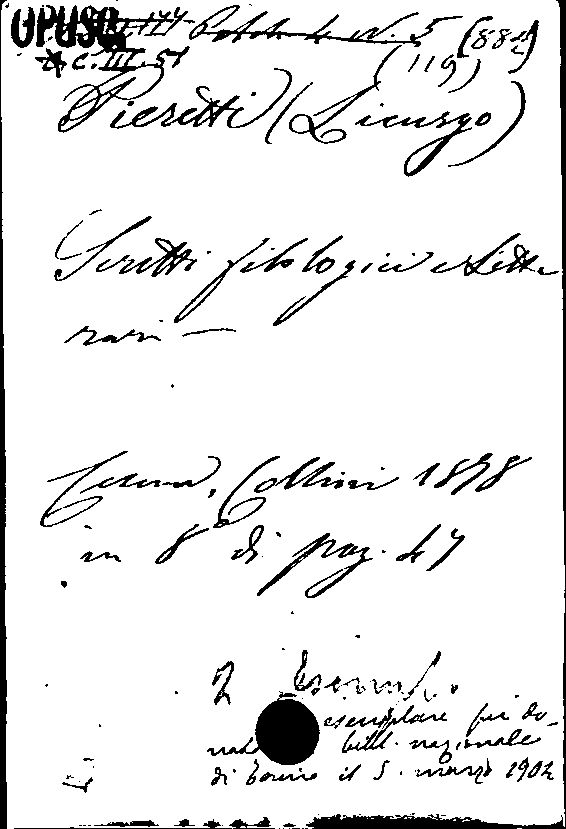 OPUSC.
Patch. 4 N. 5 (884)
* C. III. 51 (119)
Pieretti (Licurgo)
Scritti filologici e Lette
rari —
Cesena, Collini 1878
in 8° di pag. 47
2 Esempl.
esemplare fu do-
nato bibl. nazionale
di Torino il 5. marzo 1904